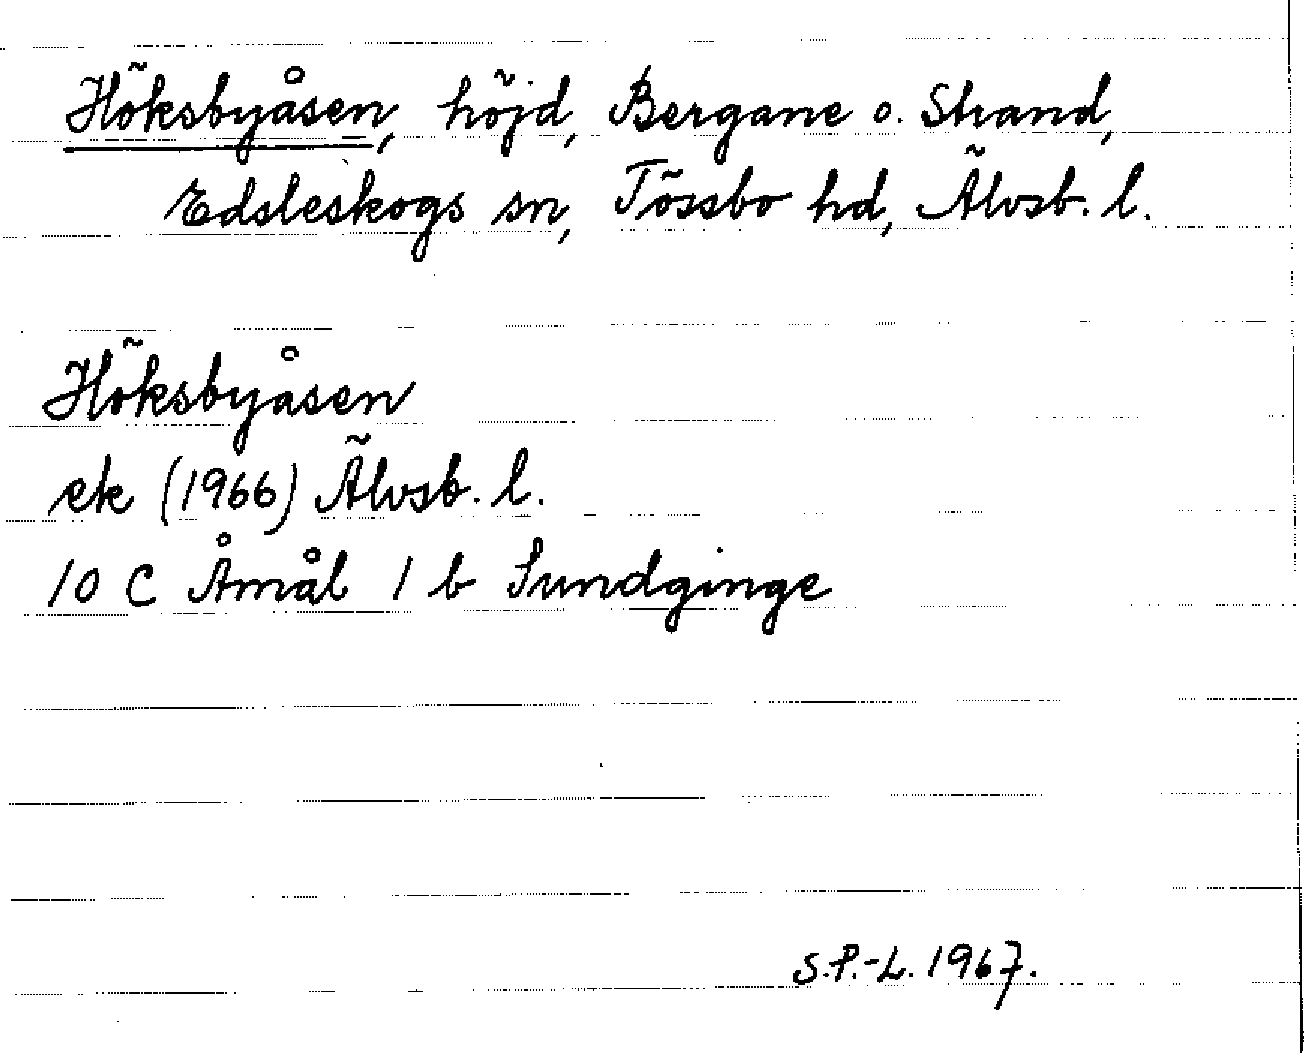 Höksbyåsen, höjd, Bergane o. Strand,
Edsleskogs sn, Tössbo hd, Älvsb. l.
Höksbyåsen
ek (1966) Älvsb. l.
10 C Åmål 1 b Sundginge
S.P.-L. 1967.